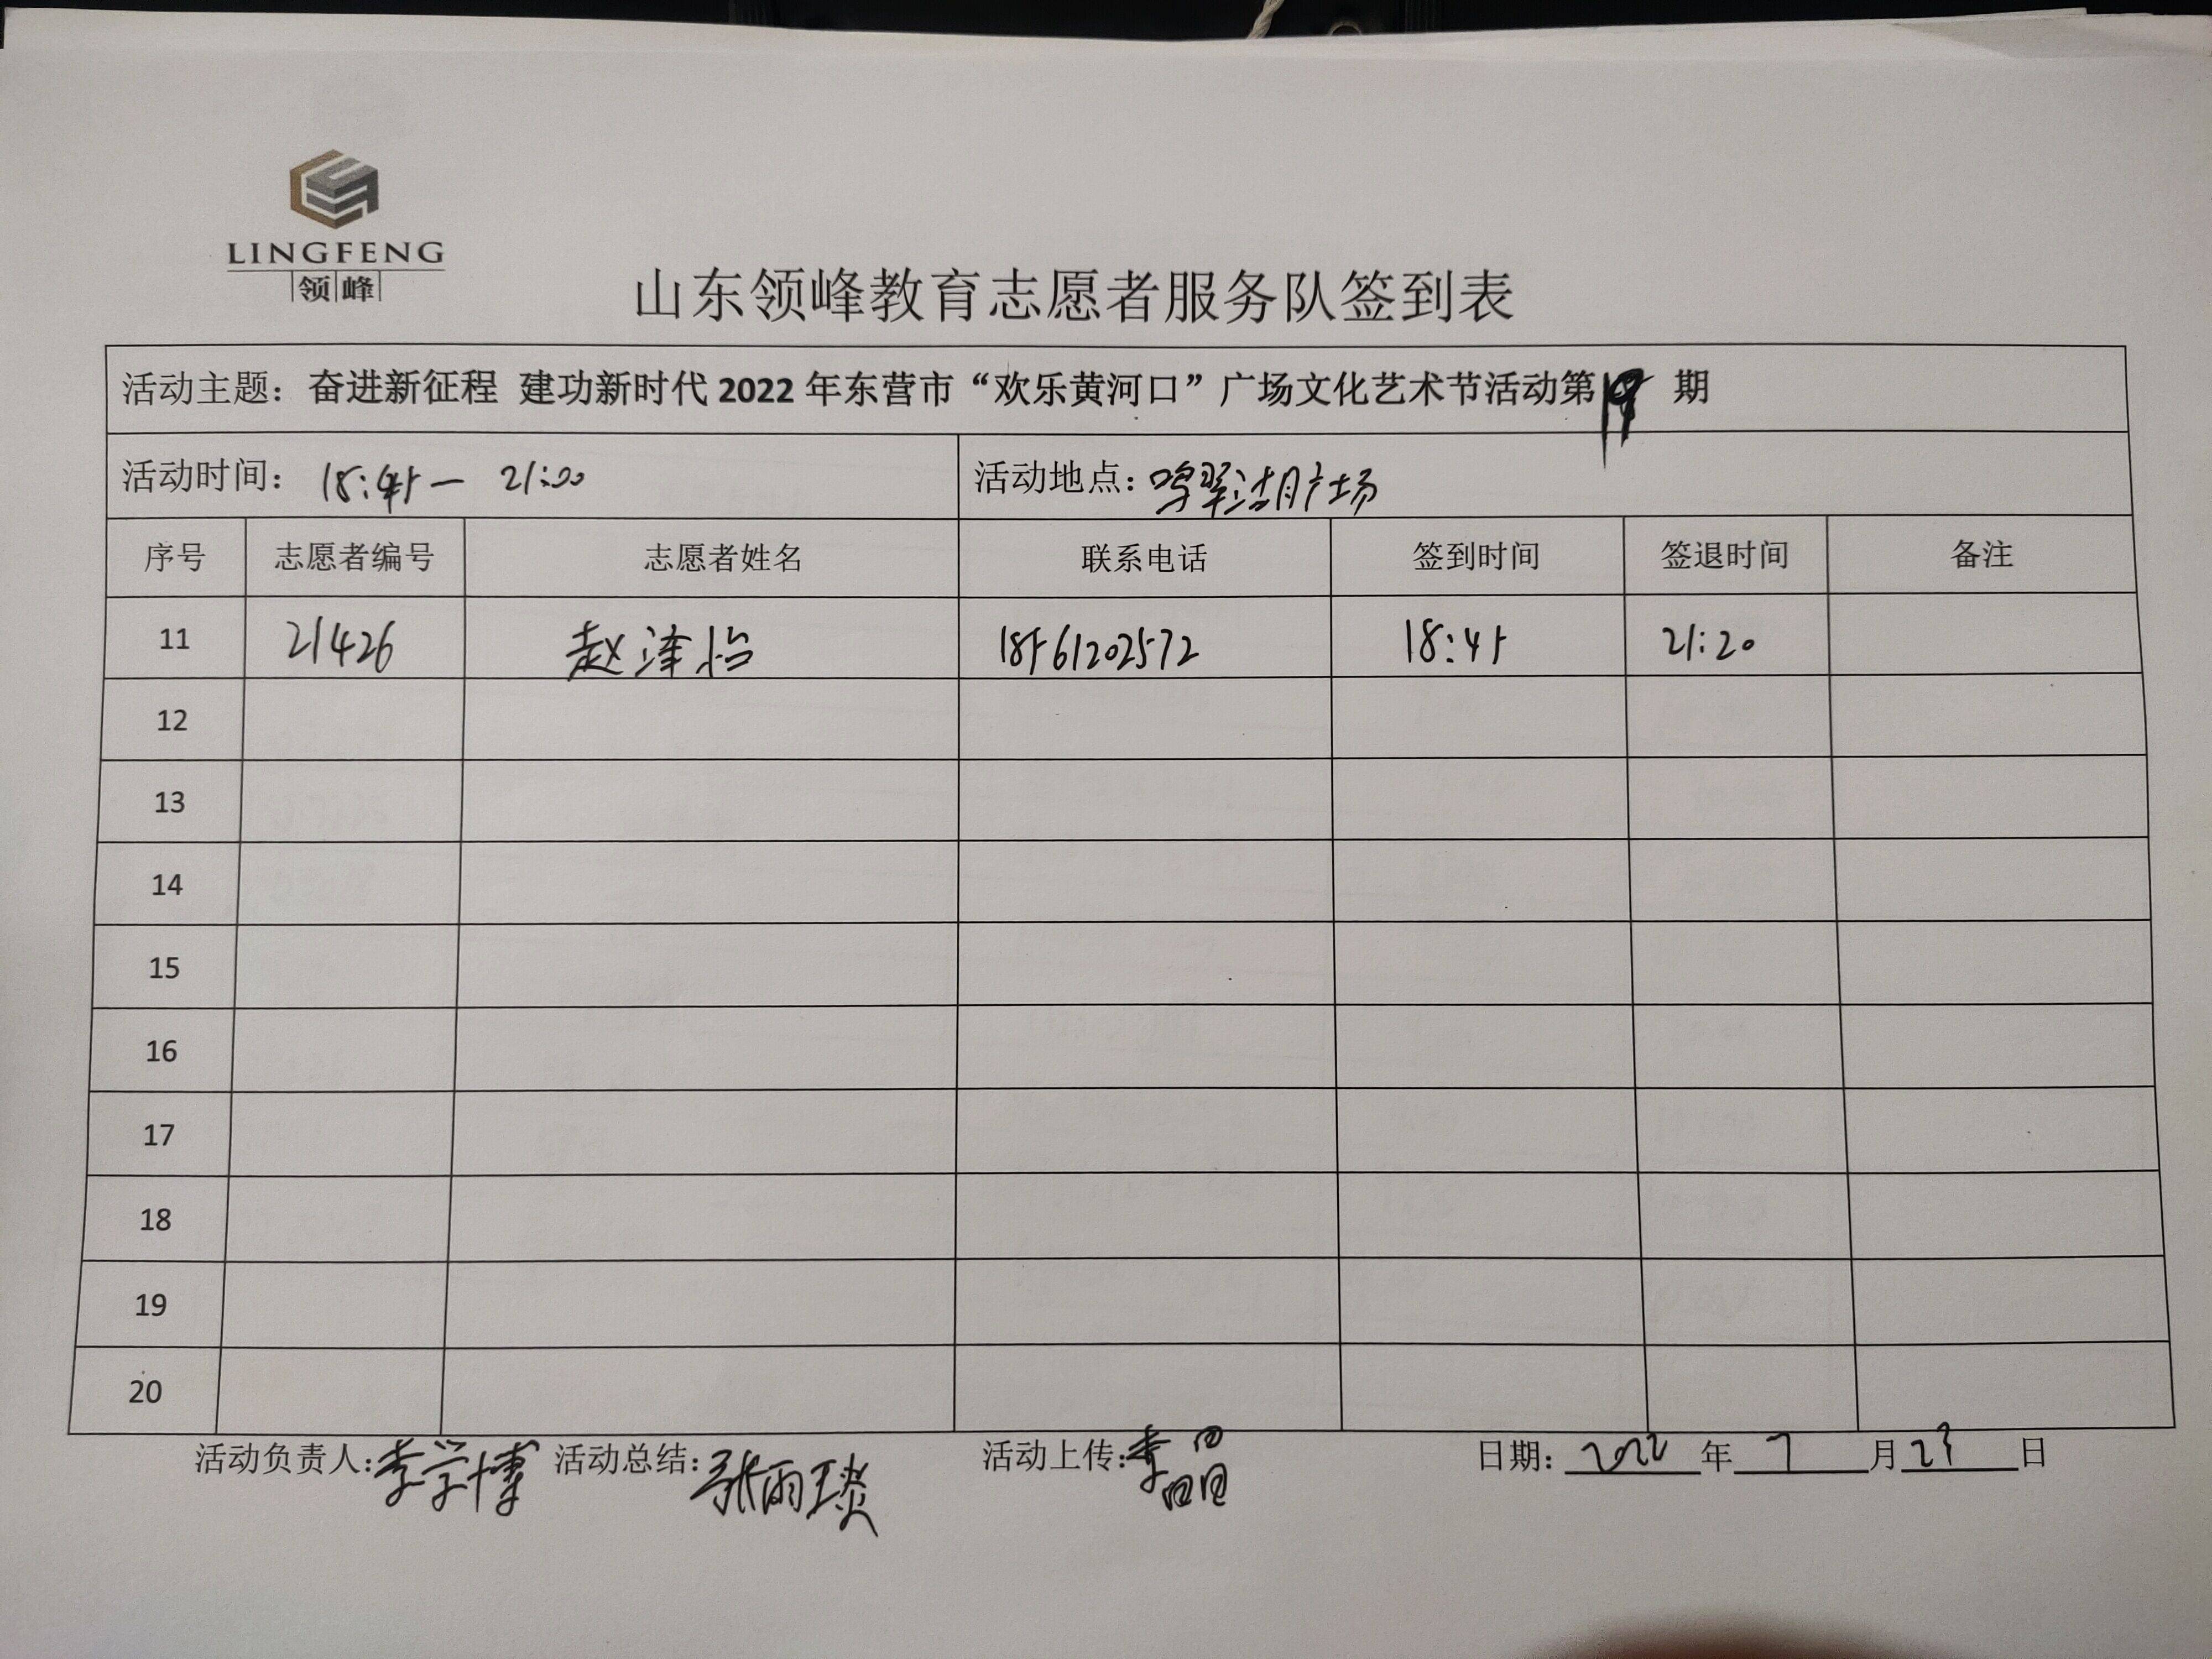 LINGFENG
领峰
山东领峰教育志愿者服务队签到表
活动主题：奋进新征程 建功新时代 2022 年东营市“欢乐黄河口”广场文化艺术节活动第19期
活动时间：18:45— 21:00 活动地点：鸣翠湖广场
序号 志愿者编号 志愿者姓名 联系电话 签到时间 签退时间 备注
11 21426 赵泽怡 18561202572 18:45 21:20
12
13
14
15
16
17
18
19
20
活动负责人：李学博 活动总结：张雨琰 活动上传：李晶 日期：2022 年 7 月 23 日